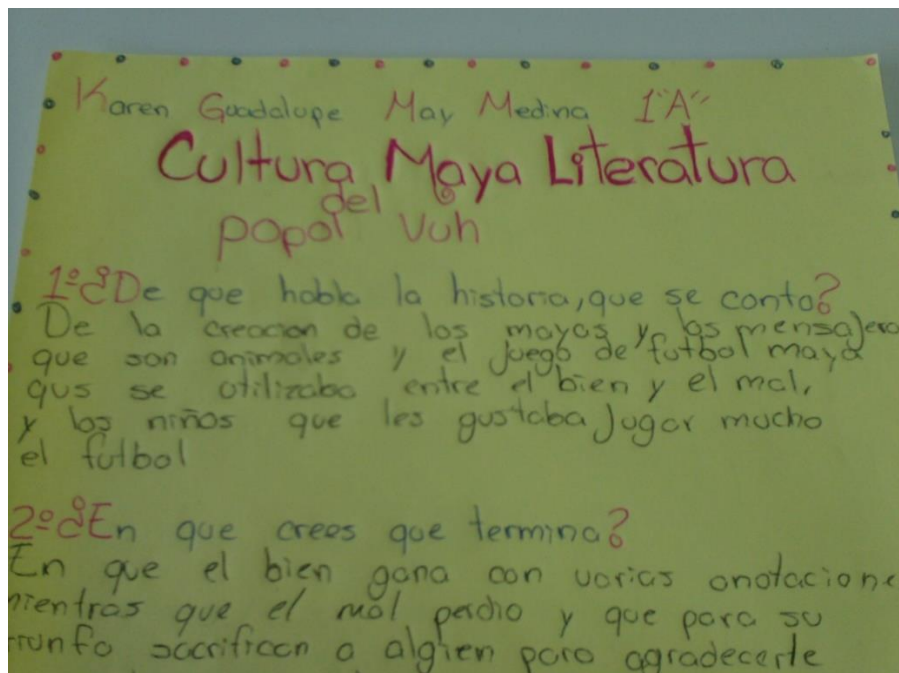 Karen Guadalupe May Medina 1"A"
Cultura Maya Literatura
del
popol Vuh
1º ¿De que habla la historia, que se conto?
De la creacion de los mayas y los mensajero
que son animales y el juego de futbol maya
qus se utilizaba entre el bien y el mal,
y los niños que les gustaba Jugar mucho
el futbol
2º ¿En que crees que termina?
En que el bien gana con varias anotacione
mientras que el mal perdio y que para su
triunfo sacrifican a algien para agradecerle